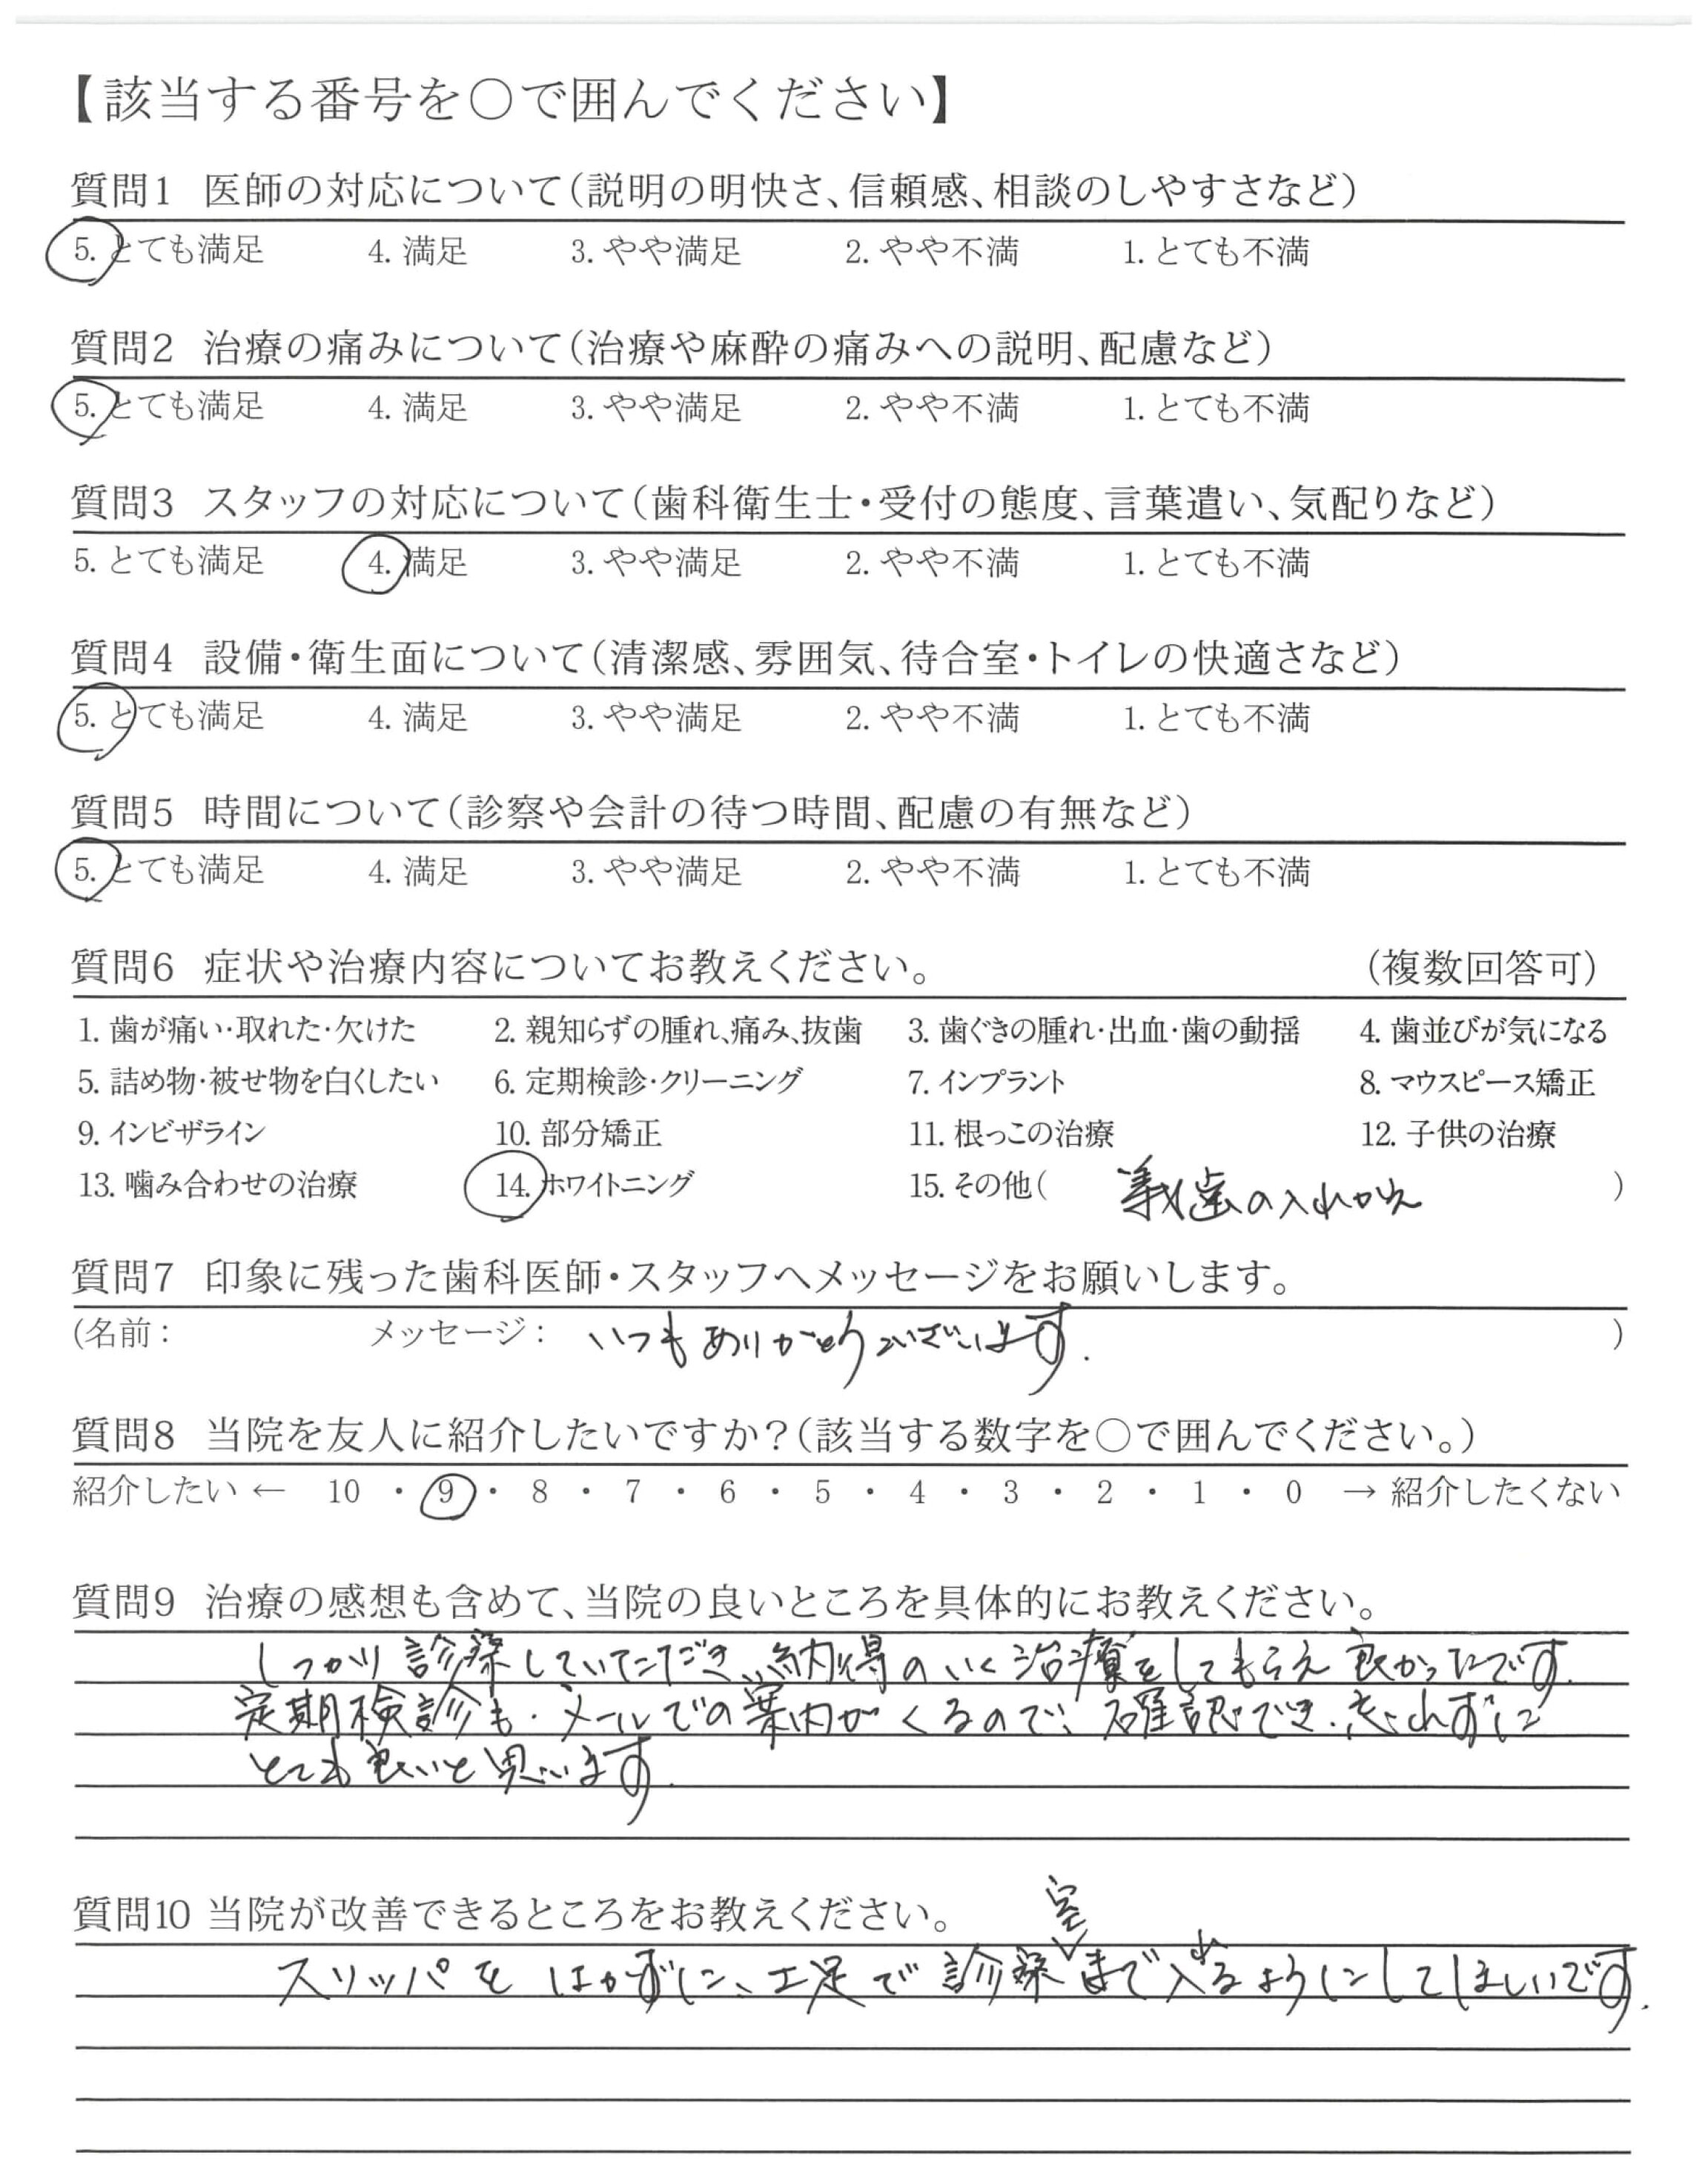 【該当する番号を○で囲んでください】
質問1 医師の対応について(説明の明快さ、信頼感、相談のしやすさなど)
5. とても満足 4. 満足 3. やや満足 2. やや不満 1. とても不満
質問2 治療の痛みについて(治療や麻酔の痛みへの説明、配慮など)
5. とても満足 4. 満足 3. やや満足 2. やや不満 1. とても不満
質問3 スタッフの対応について(歯科衛生士・受付の態度、言葉遣い、気配りなど)
5. とても満足 4. 満足 3. やや満足 2. やや不満 1. とても不満
質問4 設備・衛生面について(清潔感、雰囲気、待合室・トイレの快適さなど)
5. とても満足 4. 満足 3. やや満足 2. やや不満 1. とても不満
質問5 時間について(診察や会計の待つ時間、配慮の有無など)
5. とても満足 4. 満足 3. やや満足 2. やや不満 1. とても不満
質問6 症状や治療内容についてお教えください。 (複数回答可)
1. 歯が痛い・取れた・欠けた 2. 親知らずの腫れ、痛み、抜歯 3. 歯ぐきの腫れ・出血・歯の動揺 4. 歯並びが気になる
5. 詰め物・被せ物を白くしたい 6. 定期検診・クリーニング 7. インプラント 8. マウスピース矯正
9. インビザライン 10. 部分矯正 11. 根っこの治療 12. 子供の治療
13. 噛み合わせの治療 14. ホワイトニング 15. その他( 義歯の入れかえ )
質問7 印象に残った歯科医師・スタッフへメッセージをお願いします。
(名前: メッセージ: いつもありがとうございます. )
質問8 当院を友人に紹介したいですか?(該当する数字を○で囲んでください。)
紹介したい ← 10 ・ 9 ・ 8 ・ 7 ・ 6 ・ 5 ・ 4 ・ 3 ・ 2 ・ 1 ・ 0 → 紹介したくない
質問9 治療の感想も含めて、当院の良いところを具体的にお教えください。
しっかり診察していただき、納得のいく治療をしてもらえ良かったです.
定期検診も、メールでの案内がくるので、確認でき、忘れずに
とても良いと思います.
質問10 当院が改善できるところをお教えください。
スリッパをはかずに、土足で診察室まで入れるようにしてほしいです.